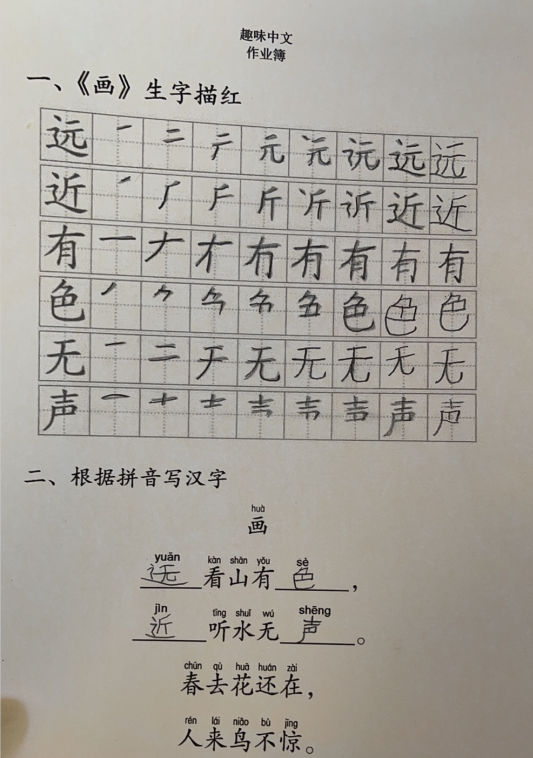 趣味中文
作业簿
一、《画》生字描红
远 远 远
近 近 近
有 有 有 有 有 有
色 色 色 色
无 无 无 无 无 无
声 声 声
二、根据拼音写汉字
huà
画
yuǎn kàn shān yǒu sè
远看山有色，
jìn tīng shuǐ wú shēng
近听水无声。
chūn qù huā huán zài
春去花还在，
rén lái niǎo bù jīng
人来鸟不惊。